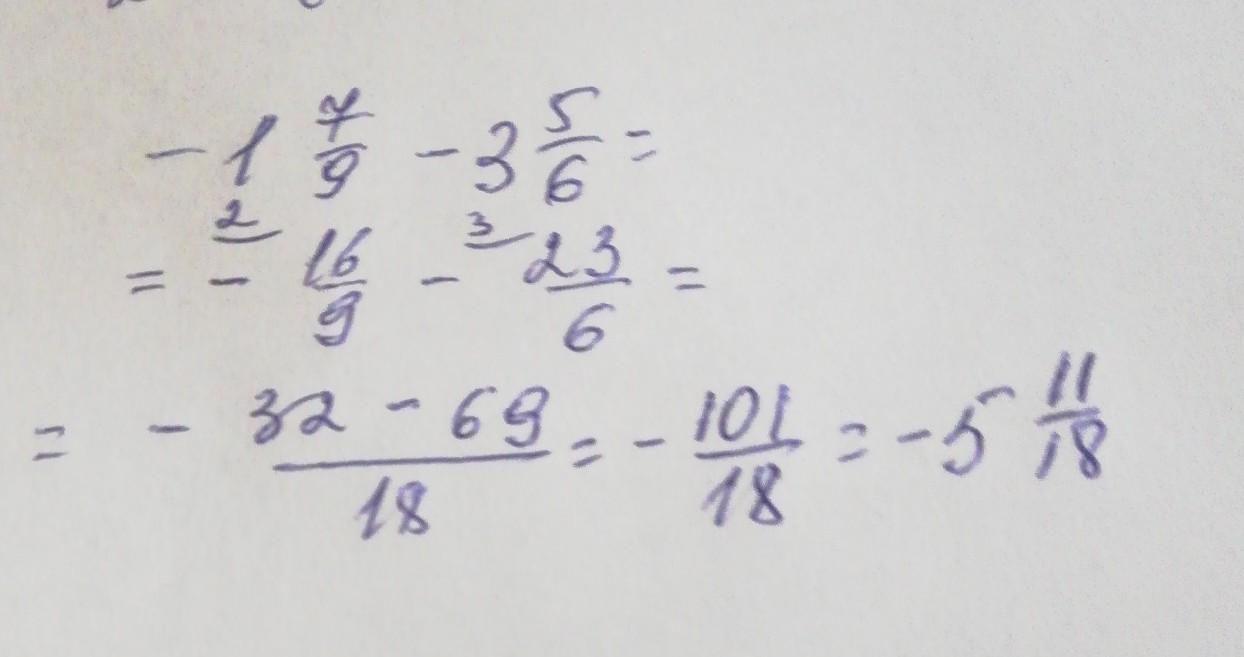 -1 7/9 - 3 5/6 =
= - 2 16/9 - 3 23/6 =
= - 32 - 69/18 = - 101/18 = -5 11/18